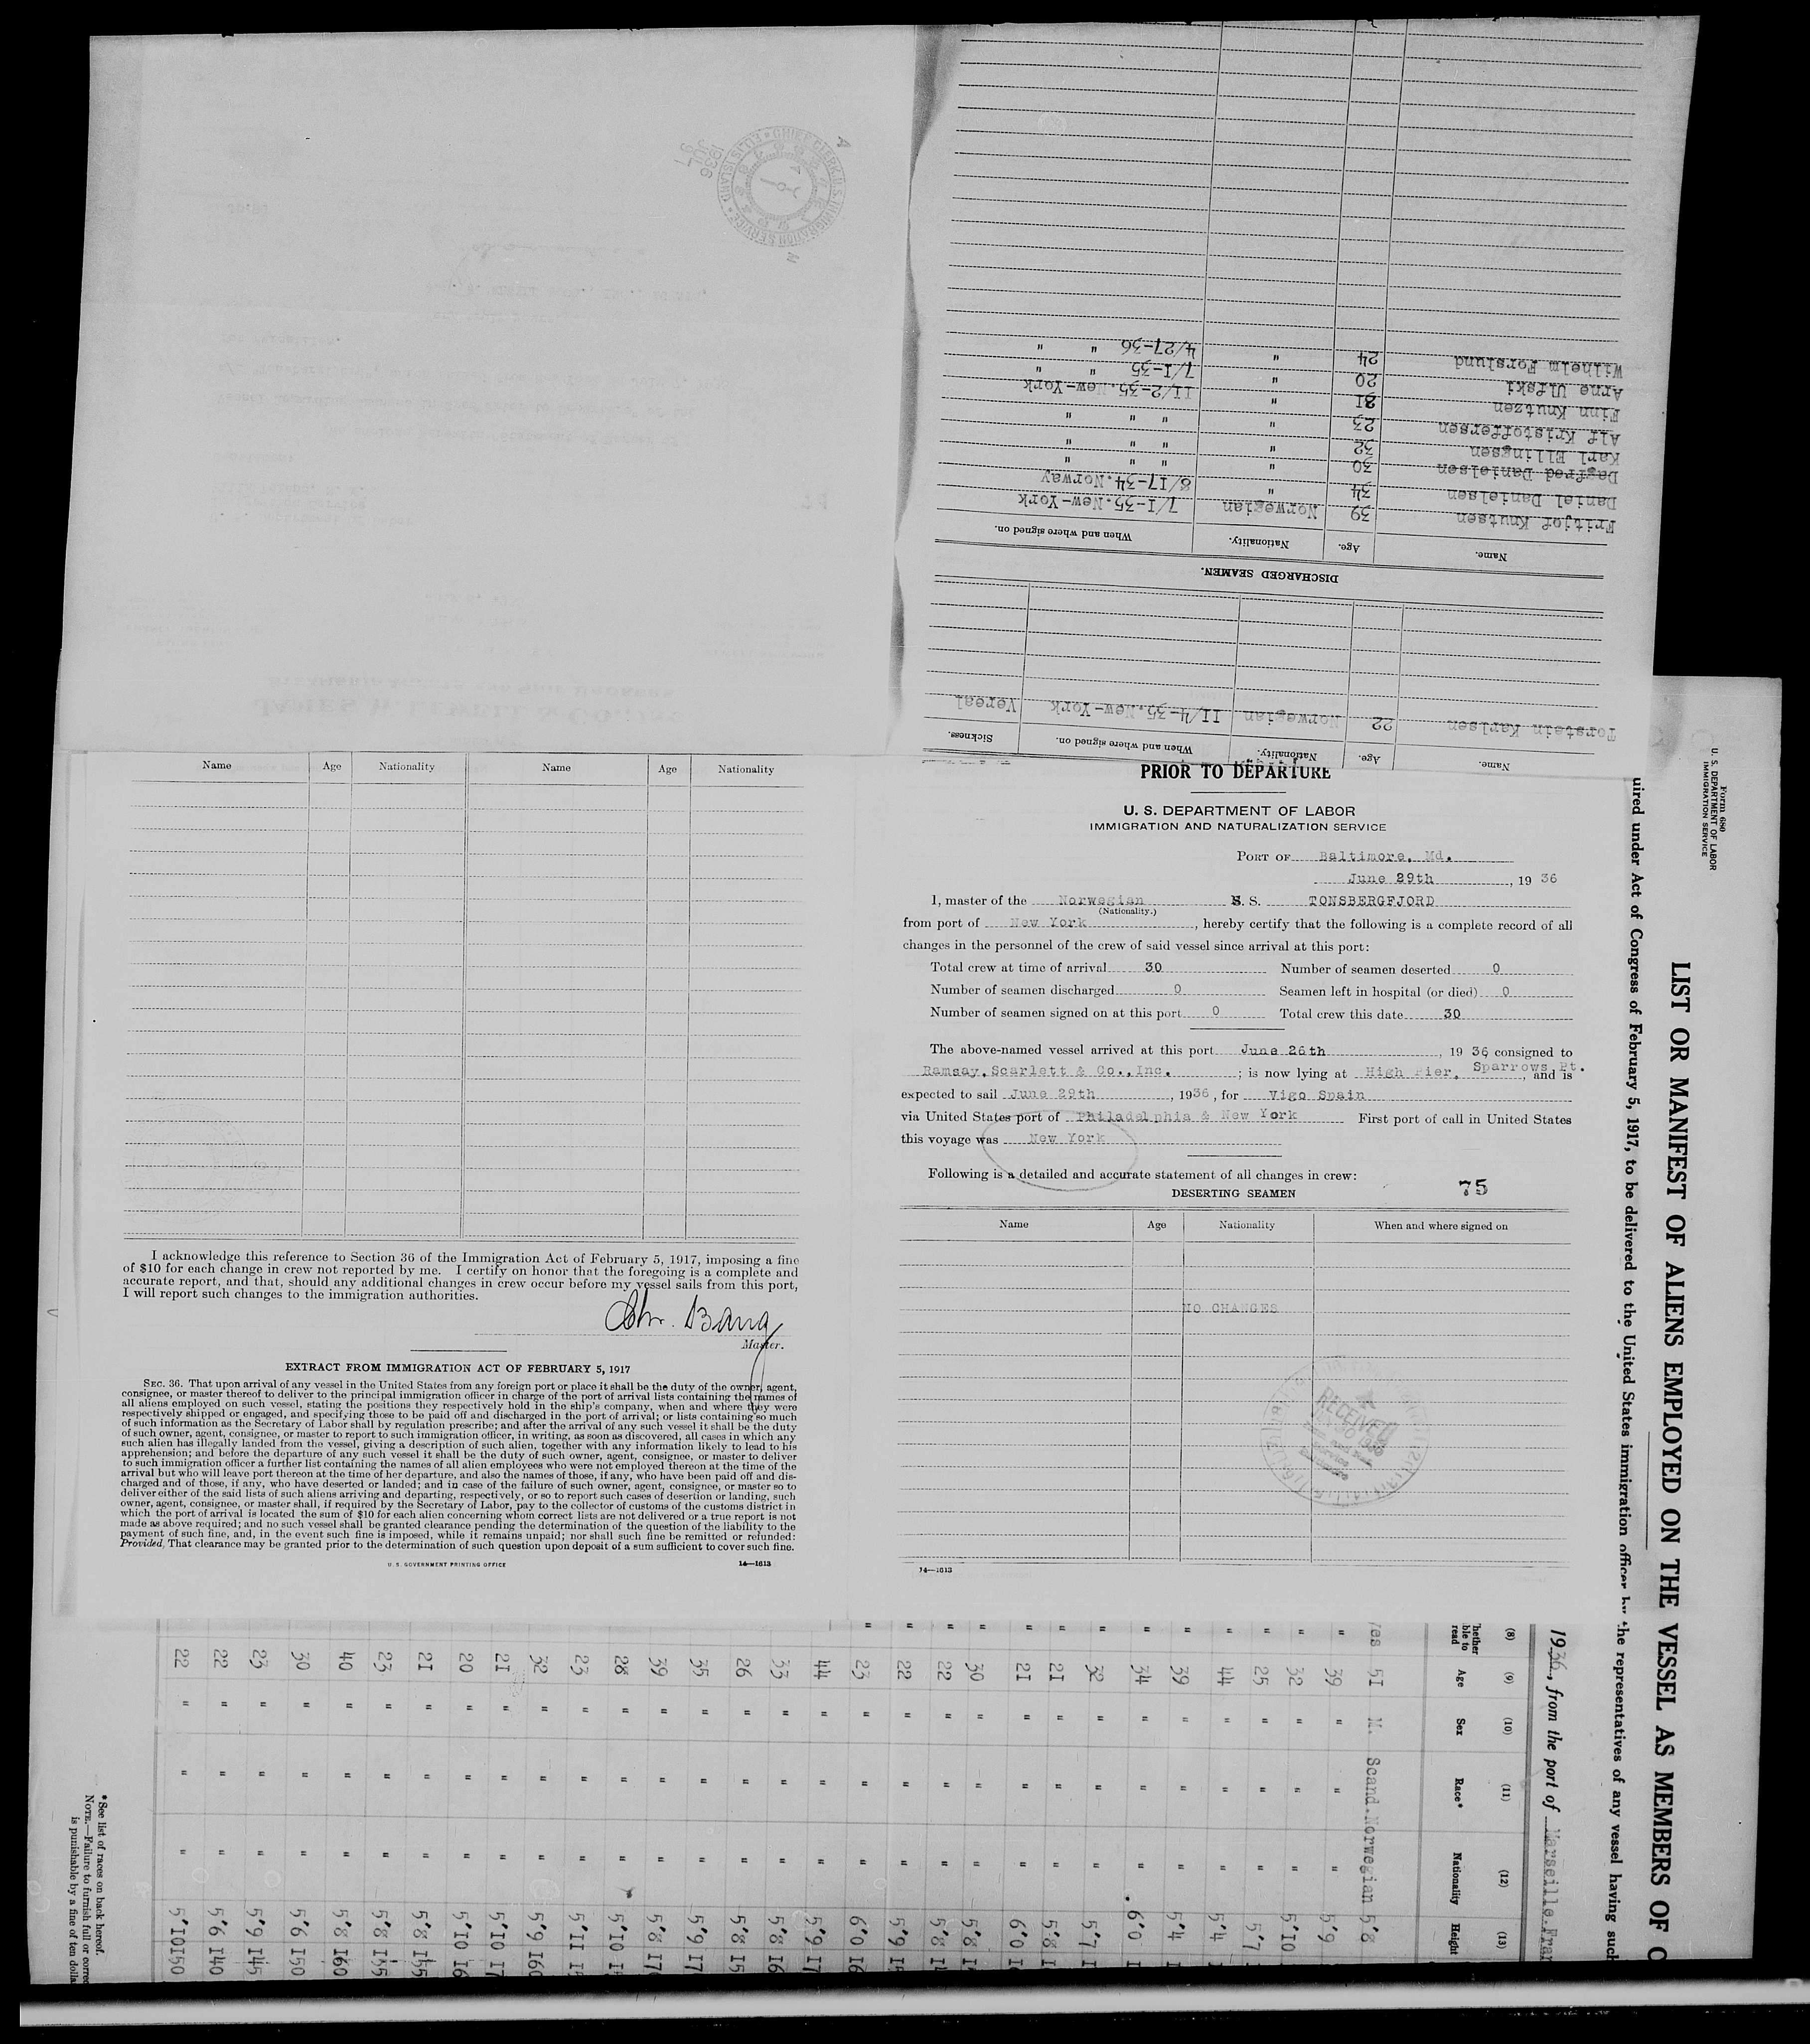 CHIEF CLERK U.S. IMMIGRATION SERVICE ELLIS ISLAND
1936
JUL
Name. Age. Nationality. When and where signed on. Sickness.
Torstein Karlsen 22 Norwegian II/4-35.New-York Vereal
DISCHARGED SEAMEN.
Name. Age. Nationality. When and where signed on.
Fritjof Knutsen 39 Norwegian 7/I-35.New-York
Daniel Danielsen 34 " 8/I7-34.Norway
Dagfred Danielsen 30 " " " "
Karl Ellingsen 32 " " " "
Alf Kristoffersen 23 " " " "
Finn Knutzen 8I " II/2-35.New-York
Arne Ulfski 20 " 7/I-35 " "
Wilhelm Forslund 24 " 4/27-36 " "
Name Age Nationality Name Age Nationality
I acknowledge this reference to Section 36 of the Immigration Act of February 5, 1917, imposing a fine
of $10 for each change in crew not reported by me. I certify on honor that the foregoing is a complete and
accurate report, and that, should any additional changes in crew occur before my vessel sails from this port,
I will report such changes to the immigration authorities.
Chr. Bang
Master.
EXTRACT FROM IMMIGRATION ACT OF FEBRUARY 5, 1917
SEC. 36. That upon arrival of any vessel in the United States from any foreign port or place it shall be the duty of the owner, agent,
consignee, or master thereof to deliver to the principal immigration officer in charge of the port of arrival lists containing the names of
all aliens employed on such vessel, stating the positions they respectively hold in the ship's company, when and where they were
respectively shipped or engaged, and specifying those to be paid off and discharged in the port of arrival; or lists containing so much
of such information as the Secretary of Labor shall by regulation prescribe; and after the arrival of any such vessel it shall be the duty
of such owner, agent, consignee, or master to report to such immigration officer, in writing, as soon as discovered, all cases in which any
such alien has illegally landed from the vessel, giving a description of such alien, together with any information likely to lead to his
apprehension; and before the departure of any such vessel it shall be the duty of such owner, agent, consignee, or master to deliver
to such immigration officer a further list containing the names of all alien employees who were not employed thereon at the time of the
arrival but who will leave port thereon at the time of her departure, and also the names of those, if any, who have been paid off and dis-
charged and of those, if any, who have deserted or landed; and in case of the failure of such owner, agent, consignee, or master so to
deliver either of the said lists of such aliens arriving and departing, respectively, or so to report such cases of desertion or landing, such
owner, agent, consignee, or master shall, if required by the Secretary of Labor, pay to the collector of customs of the customs district in
which the port of arrival is located the sum of $10 for each alien concerning whom correct lists are not delivered or a true report is not
made as above required; and no such vessel shall be granted clearance pending the determination of the question of the liability to the
payment of such fine, and, in the event such fine is imposed, while it remains unpaid; nor shall such fine be remitted or refunded:
Provided, That clearance may be granted prior to the determination of such question upon deposit of a sum sufficient to cover such fine.
U. S. GOVERNMENT PRINTING OFFICE 14—1613
PRIOR TO DEPARTURE
U. S. DEPARTMENT OF LABOR
IMMIGRATION AND NATURALIZATION SERVICE
PORT OF Baltimore, Md.
June 29th, 1936
I, master of the Norwegian M. S. TONSBERGFJORD
(Nationality.)
from port of New York, hereby certify that the following is a complete record of all
changes in the personnel of the crew of said vessel since arrival at this port:
Total crew at time of arrival 30 Number of seamen deserted 0
Number of seamen discharged 0 Seamen left in hospital (or died) 0
Number of seamen signed on at this port 0 Total crew this date 30
The above-named vessel arrived at this port June 26th, 1936 consigned to
Ramsay, Scarlett & Co., Inc. ; is now lying at High Pier, Sparrows Pt., and is
expected to sail June 29th, 1936, for Vigo Spain
via United States port of Philadelphia & New York First port of call in United States
this voyage was New York
Following is a detailed and accurate statement of all changes in crew:
DESERTING SEAMEN 75
Name Age Nationality When and where signed on
NO CHANGES
RECEIVED
14—1613
Form 680
U. S. DEPARTMENT OF LABOR
IMMIGRATION SERVICE
LIST OR MANIFEST OF ALIENS EMPLOYED ON THE VESSEL AS MEMBERS OF C
uired under Act of Congress of February 5, 1917, to be delivered to the United States immigration officer by the representatives of any vessel having such
1936, from the port of Marseille.Fran
(8) (9) (10) (11) (12) (13)
hether ble to read Age Sex Race* Nationality Height
Yes 5I M. Scand. Norwegian 5'8
" 39 " " " 5'9
" 32 " " " 5'10
" 25 " " " 5'7
" 44 " " " 5'4
" 39 " " " 5'4
" 34 " " " 6'0
" 32 " " " 5'7 I
" 2I " " " 5'8 I
" 2I " " " 6'0 I
" 30 " " " 5'8 I
" 22 " " " 5'8 I
" 22 " " " 5'9 I
" 23 " " " 6'0 I6
44 " " " 5'9 I7
33 " " " 5'8 I6
26 " " " 5'8 I5
35 " " " 5'9 I7
39 " " " 5'8 I7
28 " " " 5'10 I
23 " " " 5'II I
32 " " " 5'9 I60
2I " " " 5'10 I7
20 " " " 5'10 I6
2I " " " 5'8 I55
23 " " " 5'8 I35
40 " " " 5'8 I60
30 " " " 5'6 I50
23 " " " 5'9 I45
22 " " " 5'6 I40
22 " " " 5'10 I50
* See list of races on back hereof.
NOTE.—Failure to furnish full or correc
is punishable by a fine of ten dolla